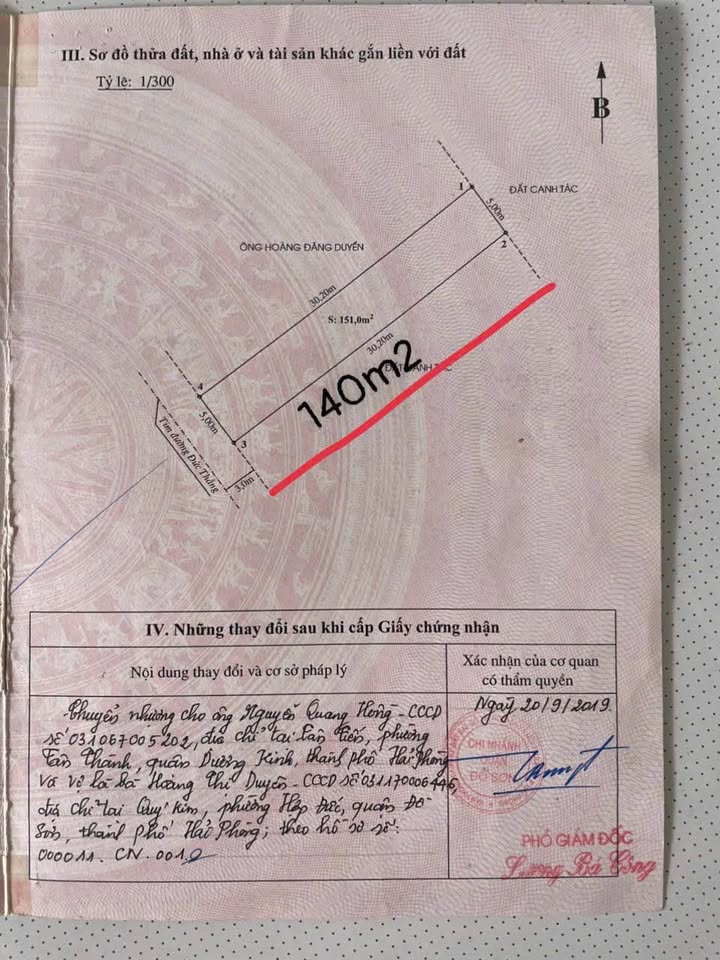 III. Sơ đồ thửa đất, nhà ở và tài sản khác gắn liền với đất
Tỷ lệ: 1/300
B
1
ĐẤT CANH TÁC
5,00m
2
ÔNG HOÀNG ĐĂNG DUYẾN
30,20m
S: 151,0m²
30,20m
140m2
4
5,00m
3
Tim đường Đức Thắng
3,0m
IV. Những thay đổi sau khi cấp Giấy chứng nhận
Nội dung thay đổi và cơ sở pháp lý
Xác nhận của cơ quan
có thẩm quyền
Chuyển nhượng cho ông Nguyễn Quang Hồng - CCCD
số 031067005202, địa chỉ tại Tân Tiến, phường
Tân Thành, quận Dương Kinh, thành phố Hải Phòng
và vợ là bà Hoàng Thị Duyên - CCCD số 031170006446,
địa chỉ tại Quý Kim, phường Hợp Đức, quận Đồ
Sơn, thành phố Hải Phòng; theo hồ sơ số:
000011.CN.001
Ngày 20/9/2019.
CHI NHÁNH
QUẬN
ĐỒ SƠN
PHÓ GIÁM ĐỐC
Lương Bá Công